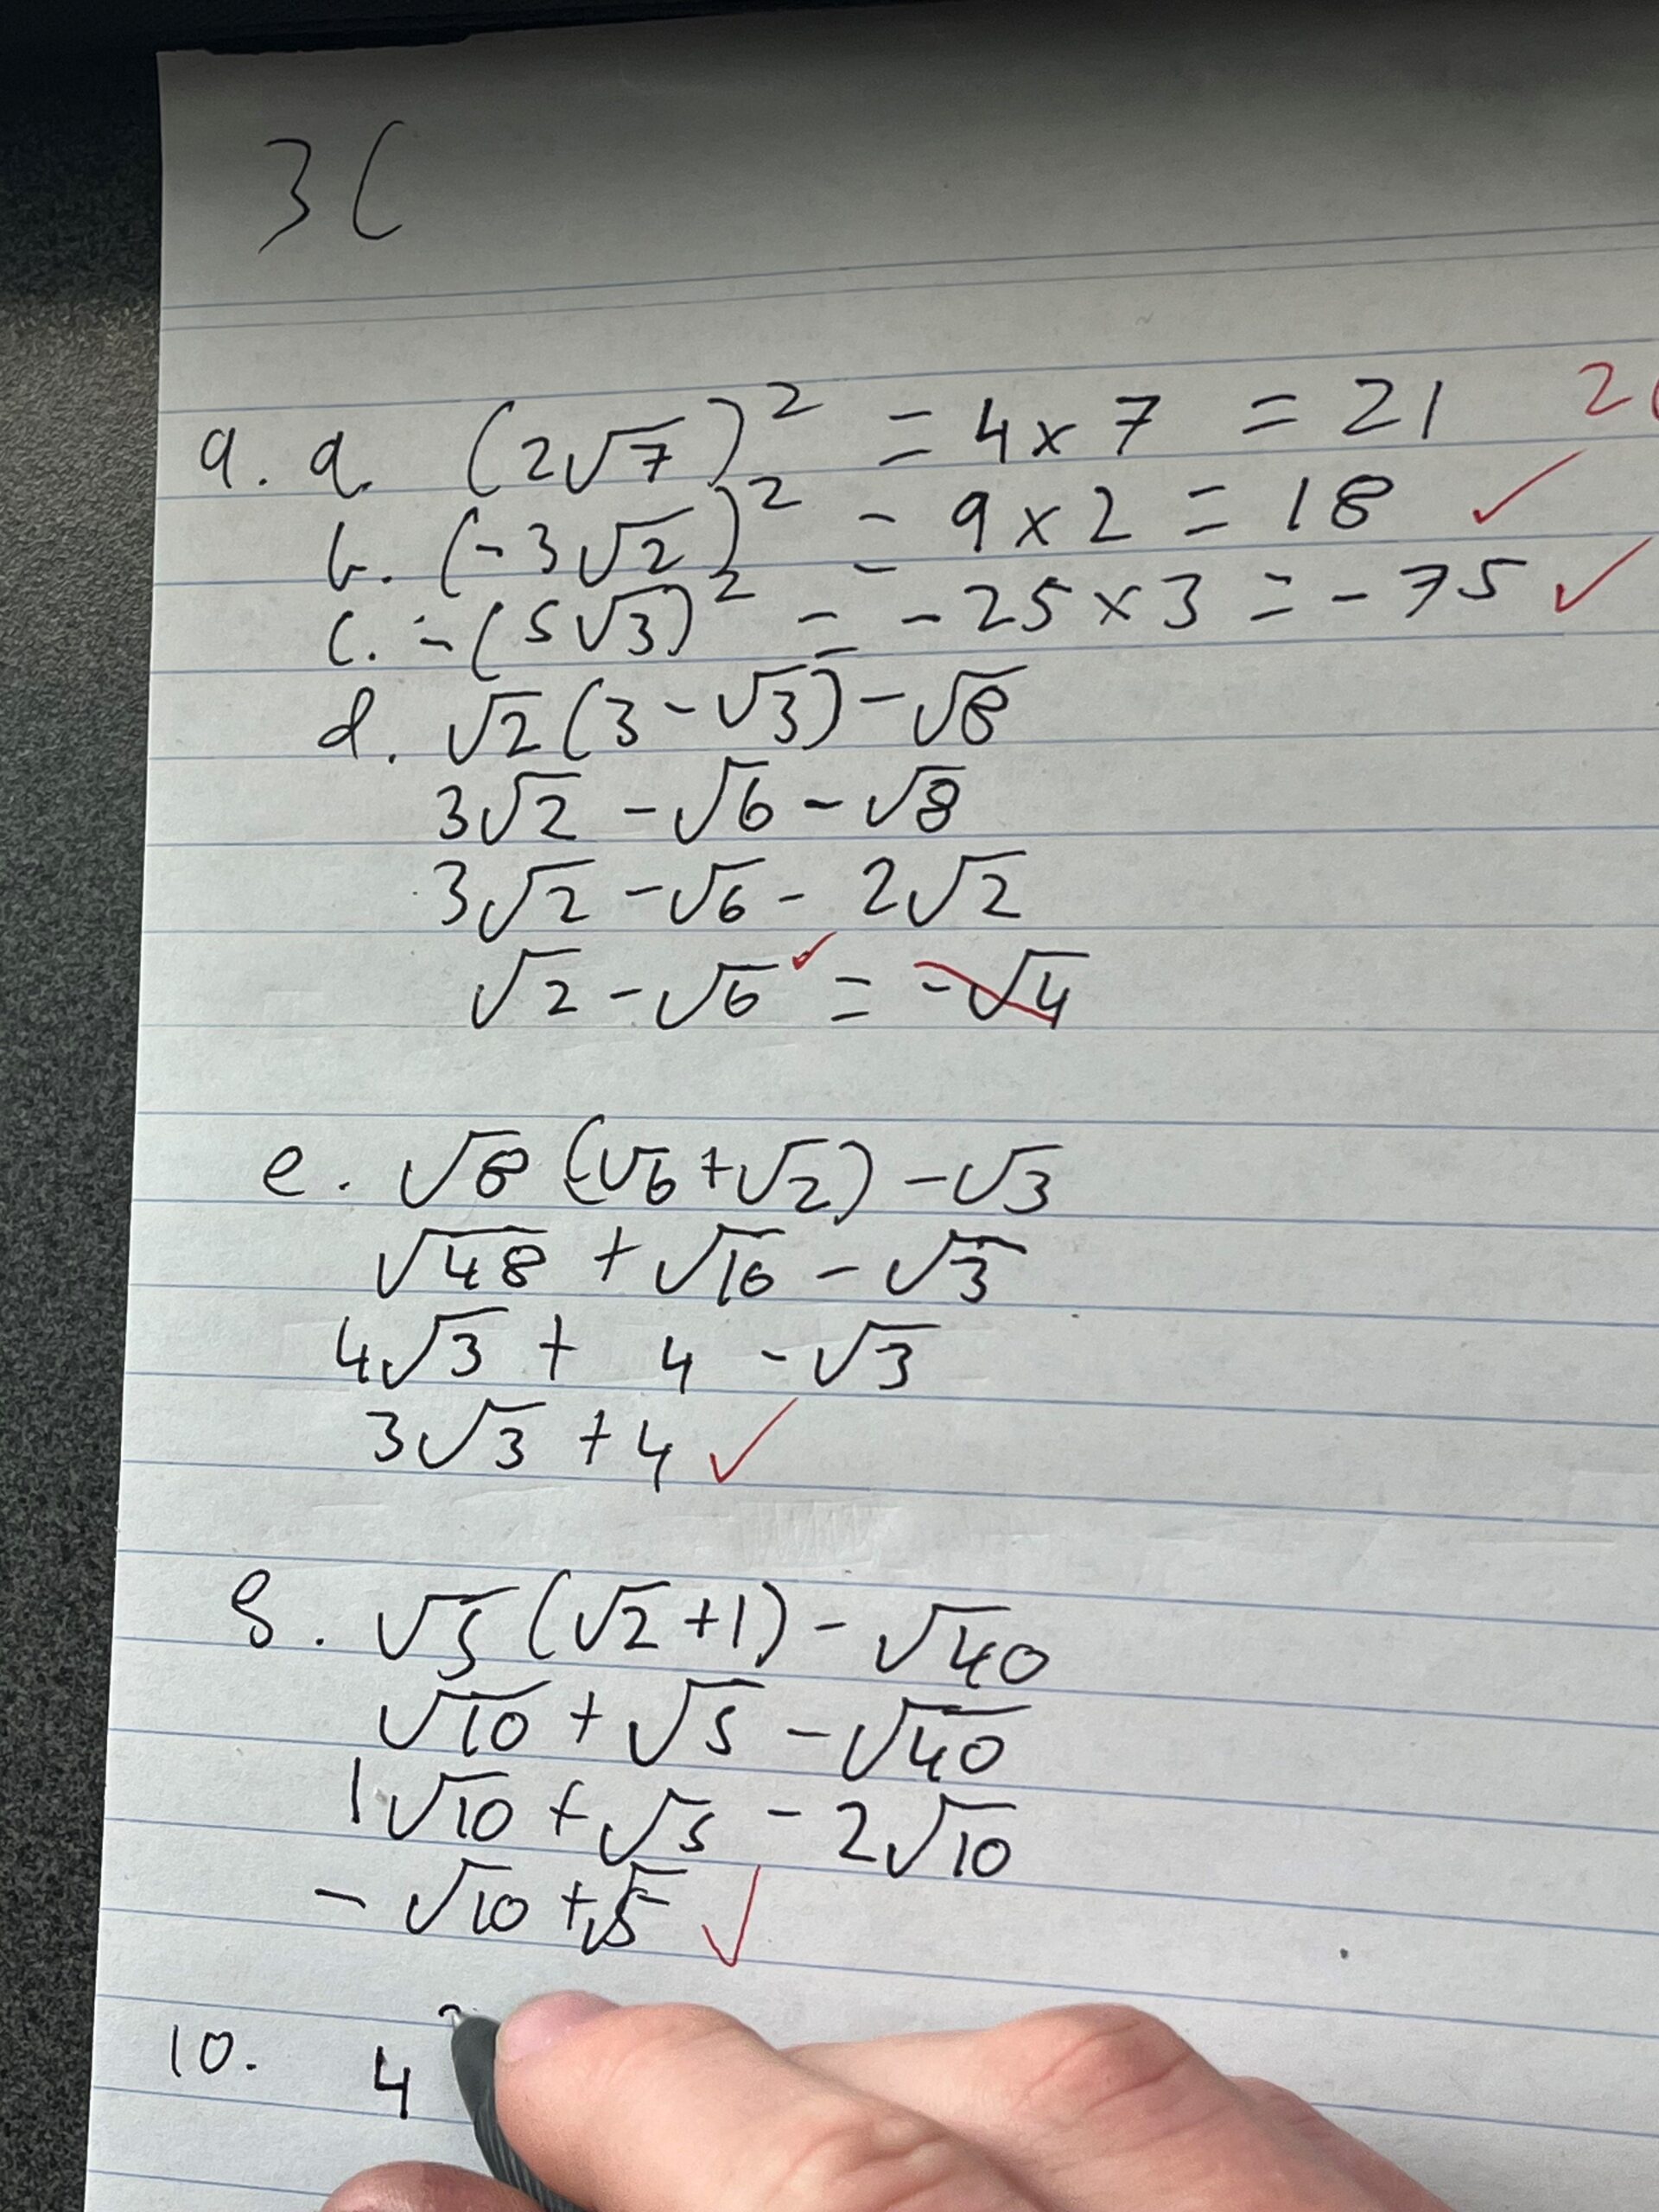 3C
9. a. (2√7)² = 4 x 7 = 21 2
b. (-3√2)² = 9 x 2 = 18 ✓
c. -(5√3)² = -25 x 3 = -75 ✓
d. √2(3-√3)-√8
3√2 - √6 - √8
3√2 - √6 - 2√2
√2 - √6 ✓ = -√4
e. √8 (√6+√2) - √3
√48 + √16 - √3
4√3 + 4 - √3
3√3 + 4 ✓
g. √5 (√2+1) - √40
√10 + √5 - √40
1√10 + √5 - 2√10
- √10 + √5 ✓
10. 4